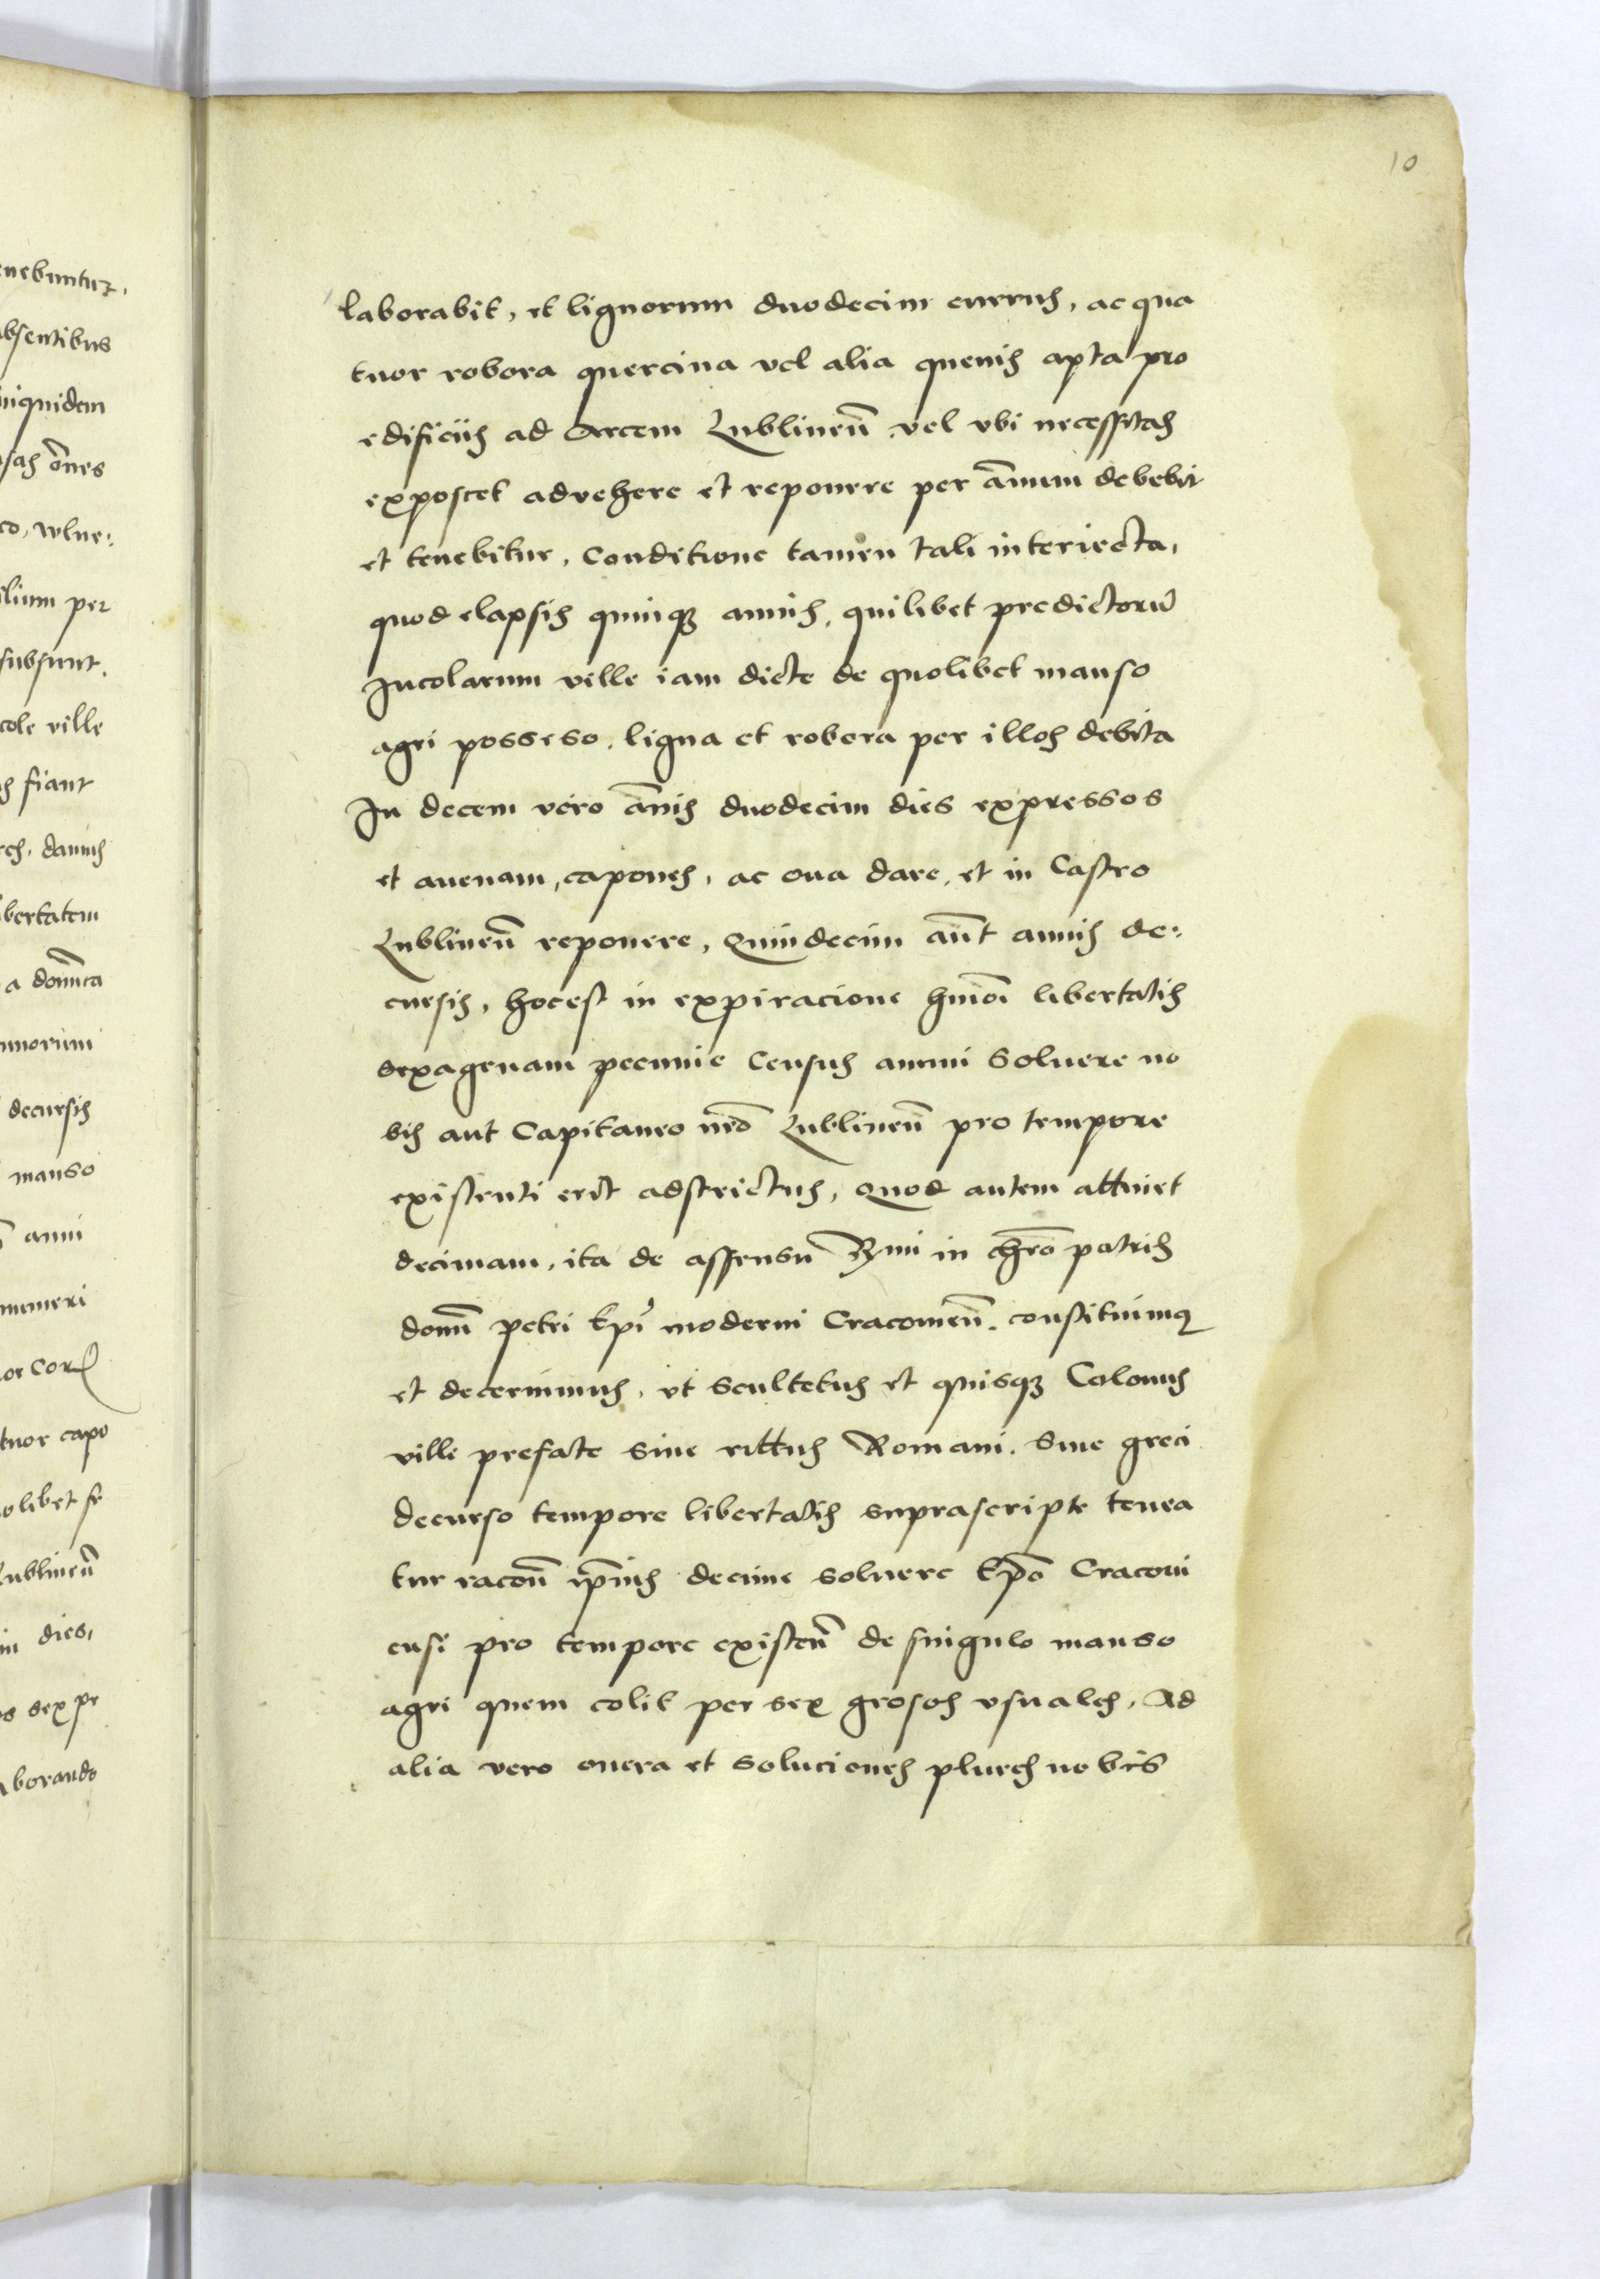 10
laborabit, et lignorum duodecim currus, ac qua
tuor robora quercina vel alia quevis apta pro
edificiis ad Arcem Lublineñ vel vbi necessitas
exposcet advehere et reponere per añum debebit
et tenebitur, Conditione tamen tali interiecta,
quod elapsis quinqꝫ annis, quilibet predictorũ
Incolarum ville iam dicte de quolibet manso
agri posseso, ligna et robora per illos debita
In decem vero añis duodecim dies expressos
et auenam, capones, ac oua dare, et in Castro
Lublineñ reponere, Quindecim aũt annis de:
cursis, hoc est in expiracione hmõi libertatis
sexagenam pecunie Census annui soluere no
bis aut Capitaneo nrõ Lublineñ pro tempore
existenti erit adstrictus, Quod autem attinet
decimam, ita de assensu Rmi in chro patris
domĩ petri Epĩ moderni Cracouieñ. constituimꝰ
et decernimus, vt scultetus et quisqꝫ Colonus
ville prefate siue rittus Romani. Siue greci
decurso tempore libertatis suprascripte tenea
tur racoñ ip̃ius decime soluere Ep̃o Cracoui
ensi pro tempore existeñ de singulo manso
agri quem colit per sex grosos vsuales, Ad
alia vero onera et soluciones plures nobis
enebuntur,
absentibus
siquidem
õnes
ilium per
subsunt.
cole ville
fiant
bertatem
nnorum
decursis
manso
anni
numeri
tuor capo
olibet
Lublineñ
dies,
sex pr
aborando